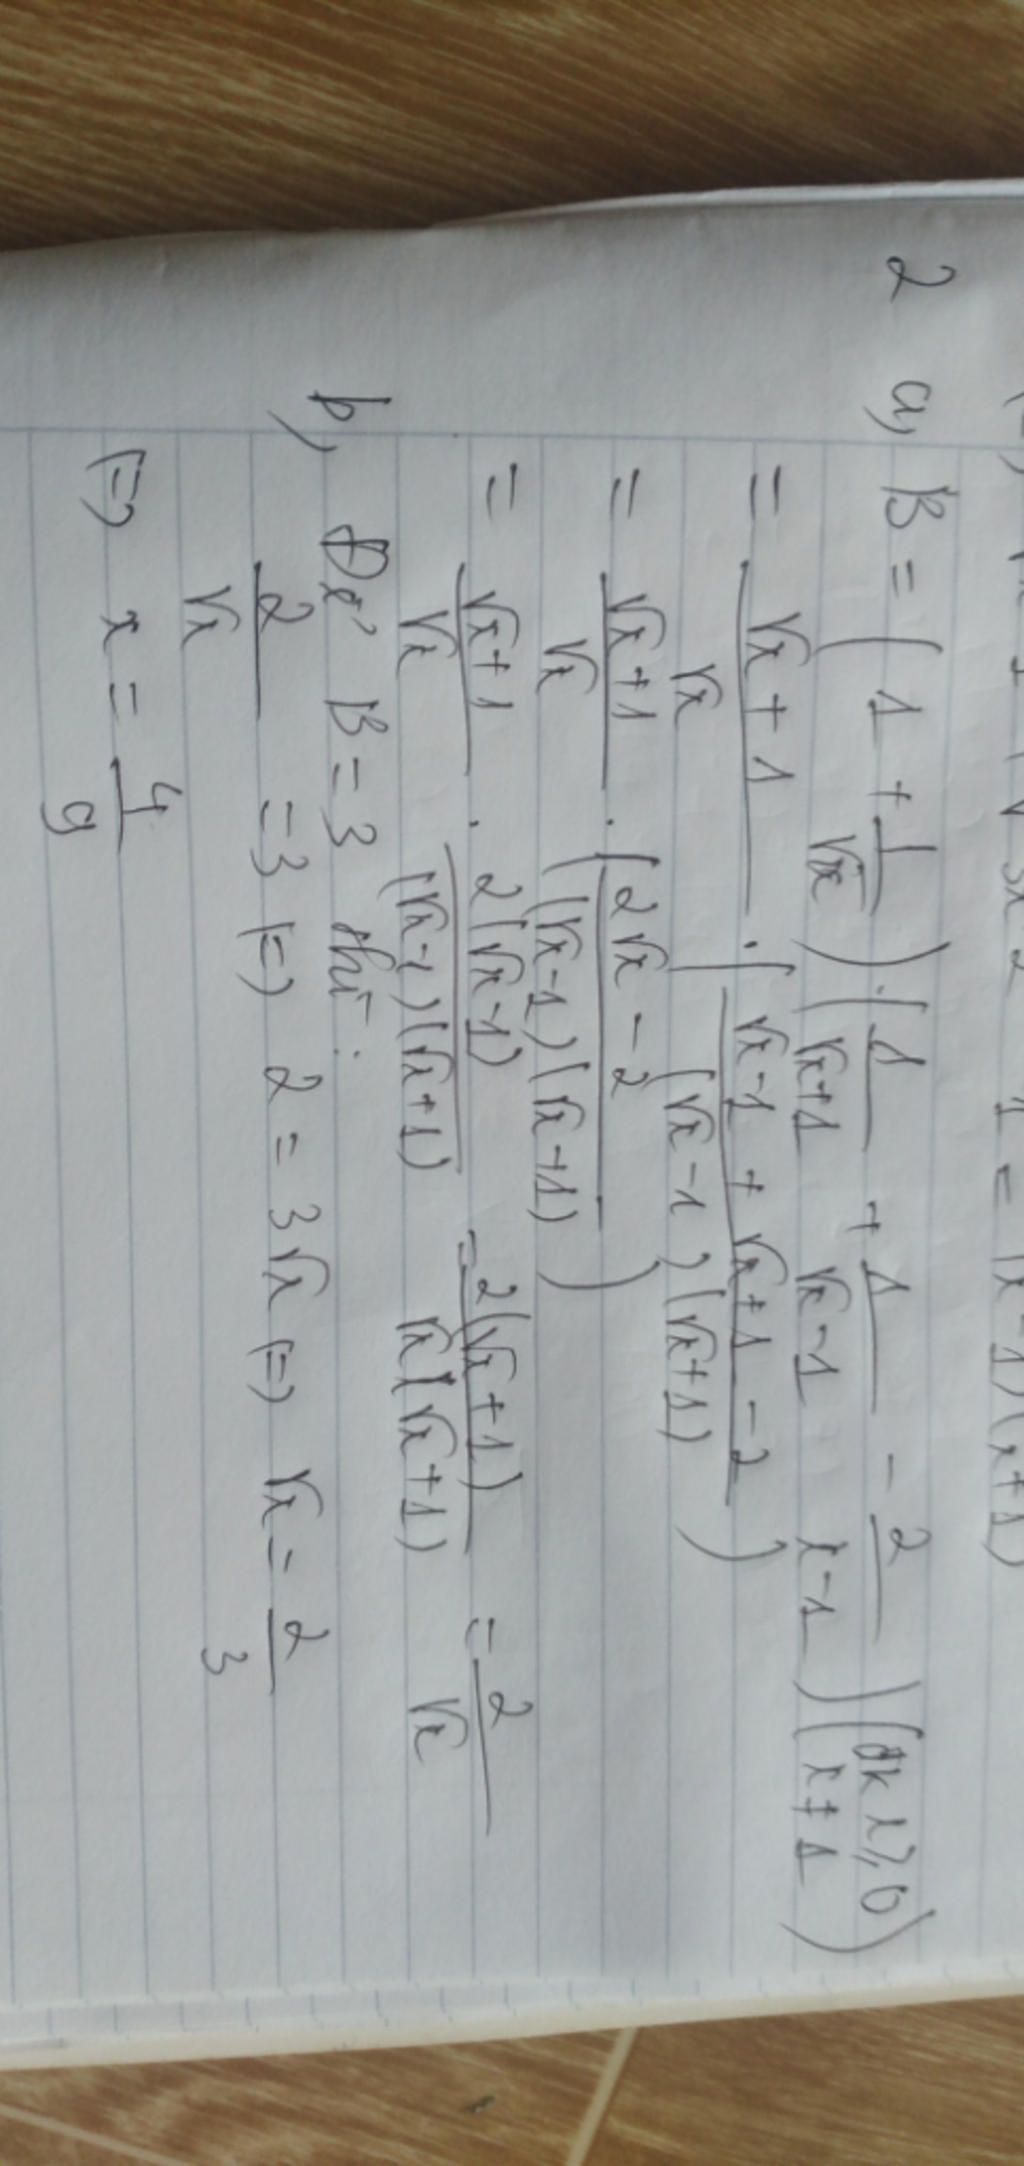 1 = (x-1)(x+1)
2 a, B = (1 + 1/√x) . (1/(√x+1) + 1/(√x-1) - 2/(x-1)) (đk x ≥ 0 x ≠ 1)
= (√x+1)/√x . ((√x-1 + √x+1 - 2)/((√x-1)(√x+1)))
= (√x+1)/√x . ((2√x - 2)/((√x-1)(√x+1)))
= (√x+1)/√x . 2(√x-1)/((√x-1)(√x+1)) = 2(√x+1)/(√x(√x+1)) = 2/√x
b, Để B = 3 thì:
2/√x = 3 (=) 2 = 3√x (=) √x = 2/3
(=) x = 4/9